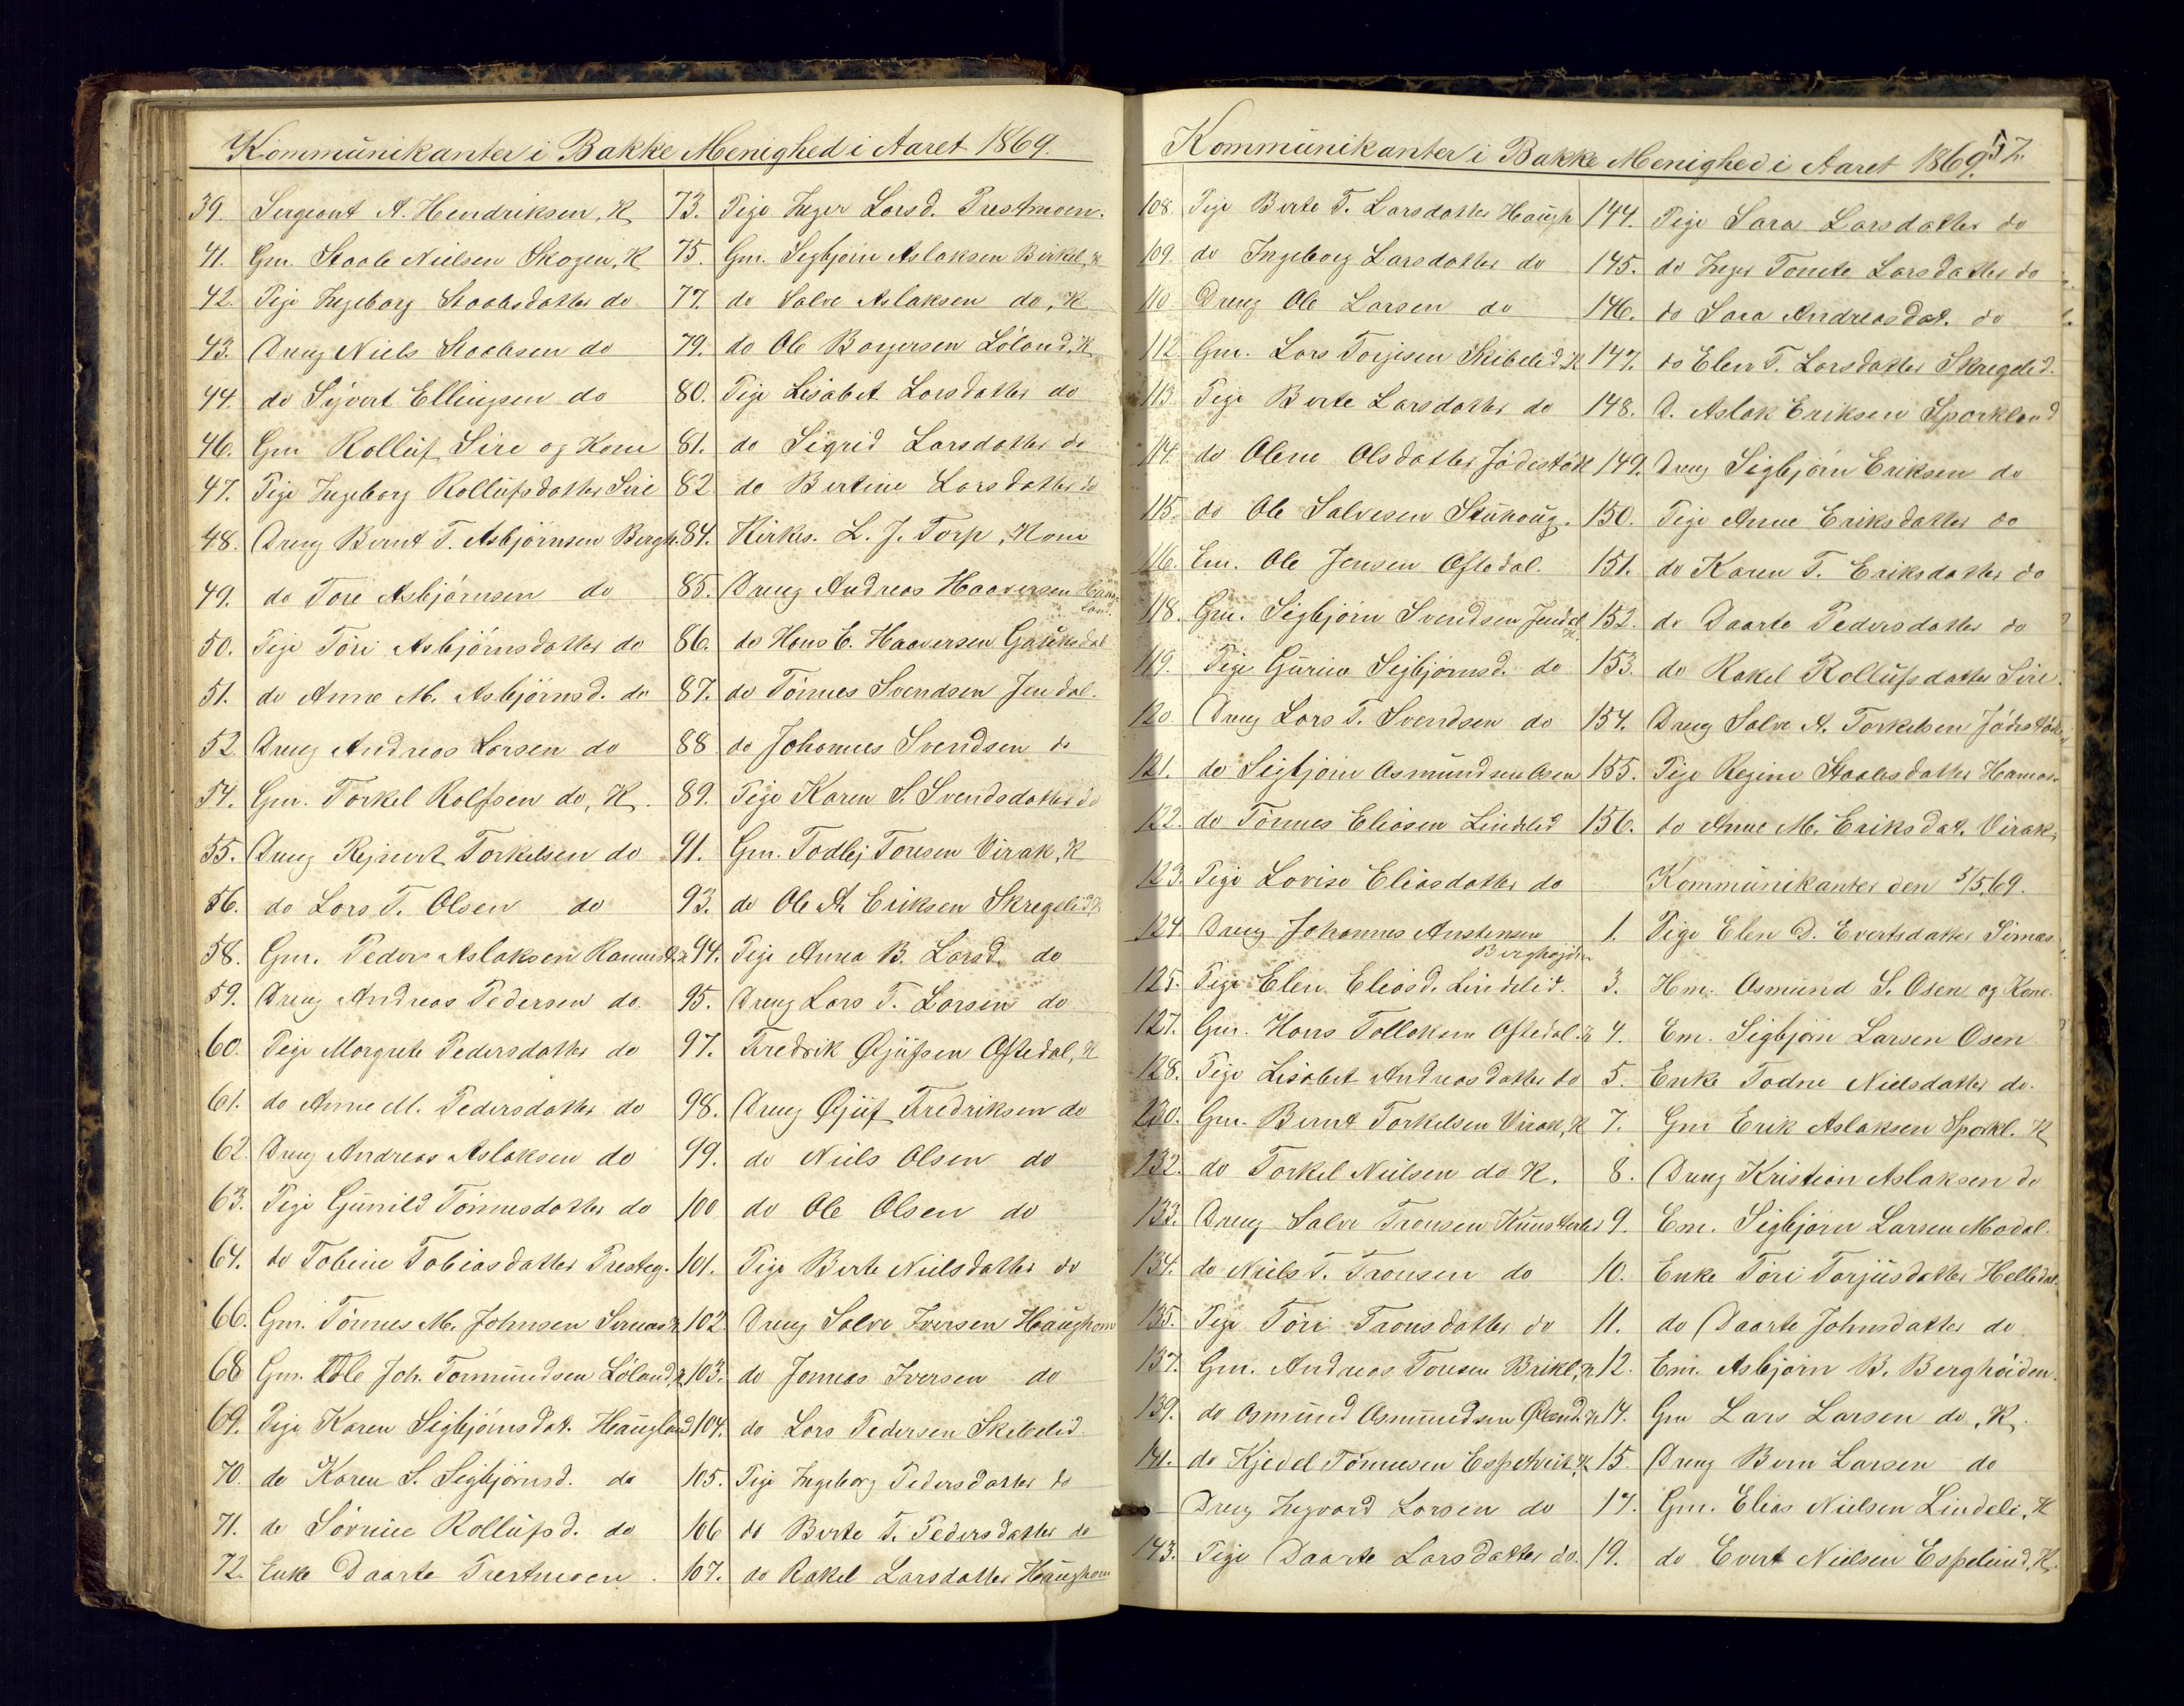 Kommunikanter i Bakke Menighed i Aaret 1869.
39. Sergeant A. Hendriksen, K
41. Gm. Staale Nielsen Skogen, K
42. Pige Ingeborg Staalesdatter do
43. Dreng Niels Staalesen do
44. do Syvert Ellingsen do
46. Gm Rolluf Sire og Kone
47. Pige Ingeborg Rollufsdatter Sire
48. Dreng Bernt T. Asbjörnsen Bergh.
49. do Tore Asbjörnsen do
50. Pige Töri Asbjörnsdatter do
51. do Anne M. Asbjörnsd. do
52 Dreng Andreas Larsen do
54. Gm. Torkel Rolfsen do, K.
55. Dreng Rejnert Torkelsen do
56. do Lars T. Olsen do
58. Gm. Peder Aslaksen
59. Dreng Andreas Pedersen do.
60. Pige Margrete Pedersdatter do
61. do Anne M. Pedersdatter do
62. Dreng Andreas Aslaksen do
63. Pige Gunild Tönnesdatter do
64. do Tobine Tobiasdatter Presteg.
66. Gm. Tönnes M. Johnsen Sirnas K
68 Gm. Ole Joh. Tormundsen Löland, K
69. Pige Karen Sigbjörnsdat. Haugland
70. do Karen S. Sigbjörnsd. do
71. do Sörine Rollufsd. do
72. Enke Daarte Prestmoen.
73. Pige Inger Larsd. Prestmoen.
75. Gm. Sigbjörn Aslaksen Birkel, K
77. do Salve Aslaksen do, K
79. do Ole Börgersen Löland, K
80. Pige Lisabet Larsdatter do
81. do Sigrid Larsdatter do
82 do Bertine Larsdatter do
84. Kirkes. L. J. Torp, Kone
85. Dreng Andreas Haaversen Haugland.
86. do Hans E. Haaversen
87. do Tönnes Svendsen Jendal.
88 do Johannes Svendsen do
89. Pige Karen S. Svendsdatter do
91. Gm. Todlej Toresen Virak, K
93. do Ole A Eriksen Skregelid, K
94. Pige Anna B. Larsd. do
95. Dreng Lars T. Larsen do
97. Fredrik Öjufsen Oftedal, K
98. Dreng Öjuf Fredriksen do
99. do Niels Olsen do
100 do Ole Olsen do
101. Pige Berte Nielsdatter do
102. Dreng Salve Iversen Haughom
103. do Jonas Iversen do
104. do Lars Pedersen Skibelid.
105. Pige Ingeborg Pedersdatter do
106 do Berte T. Pedersdatter do
107. do Rakel Larsdatter Haughom
Kommunikanter i Bakke Menighed i Aaret 1869.
57.
108. Pige Berte T. Larsdatter Haugh
109. do Ingeborg Larsdatter do
110 Dreng Ole Larsen do
112. Gm. Lars Torjesen Skibelid, K
113. Pige Berte Larsdatter do
114. do Olene Olsdatter Jödestöl
115. do Ole Salvesen Stuhaug.
116. Em. Ole Jensen Oftedal.
118. Gm. Sigbjörn Svendsen Jendal, K
119. Pige Gurine Sigbjörnsd. do
120. Dreng Lars T. Svendsen do
121. do Sigbjörn Osmundsen Osen
122. do Tönnes Eliasen Lindelid
123. Pige Lovise Eliasdatter do
124. Dreng Johannes Anstensen
Berghöjden
125. Pige Elen Eliasd. Lindelid.
127. Gm. Hans Tollaksen Oftedal. K
128. Pige Lisabet Andreasdatter do
130. Gm. Bernt Torkelsen Virak, K
132. do Torkel Nielsen do K.
133. Dreng Salve Tronsen
134. do Niels T. Tronsen do
135. Pige Töri Tronsdatter do
137. Gm. Andreas Toresen Brikl, K
139. do Osmund Osmundsen
141. do Kjedel Tönnesen Espetveit, K
Dreng Ingvard Larsen do
143. Pige Daarte Larsdatter do.
144. Pige Sara Larsdatter do
145. do Inger Tonete Larsdatter do
146. do Sara Andreasdat. do
147. do Elen T. Larsdatter Skregelid.
148. D. Aslak Eriksen Sporkland
149. Dreng Sigbjörn Eriksen do
150. Pige Anne Eriksdatter do
151. do Karen T. Eriksdatter do
152. do Daarte Pedersdatter do
153. do Rakel Rollufsdatter Sire.
154. Dreng Salve A. Torkelsen Jödestöl
155. Pige Regine Staalesdatter
156. do Anne M. Eriksdat. Virak,
Kommunikanter den 5/5 69.
1. Pige Elen D. Evertsdatter Sirnas.
3. Hm. Osmund S. Osen og Kone.
4. Em. Sigbjörn Larsen Osen
5. Enke Todne Nielsdatter do.
7. Gm Erik Aslaksen Sporkl. K
8. Dreng Kristian Aslaksen do
9. Em. Sigbjörn Larsen Modal.
10. Enke Töri Torjusdatter Helledal.
11. do Daarte Johnsdatter do
12. Em. Asbjörn B. Berghöiden.
14. Gm Lars Larsen do, K.
15. Dreng Bern Larsen do
17. Gm. Elias Nielsen Lindeli, K
19. do Evert Nielsen Espelund, K.